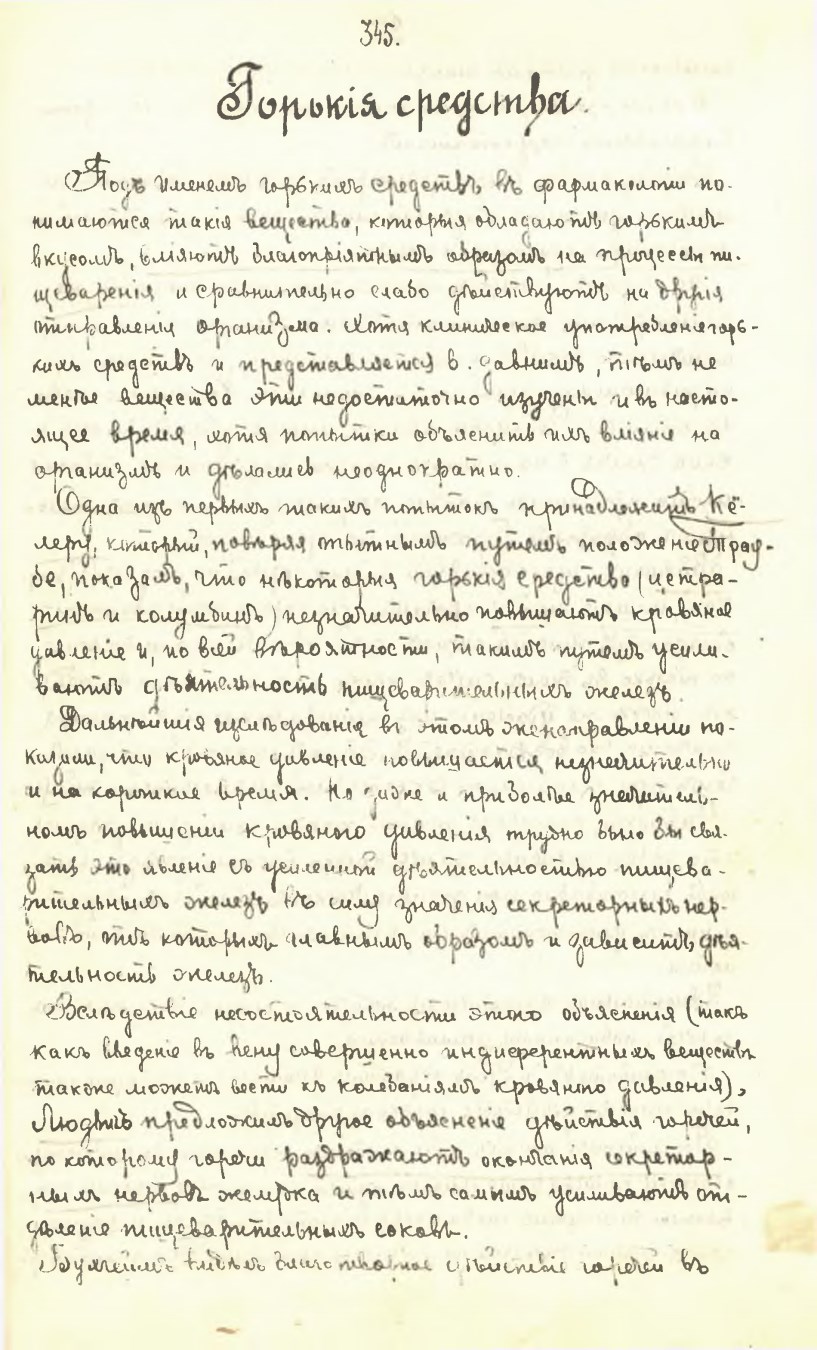 345.
Горькія средства.
Подъ именемъ горькихъ средствъ въ фармакологіи по-
нимаются такія вещества, которыя обладаютъ горькимъ
вкусомъ, вліяютъ благопріятнымъ образомъ на процессы пи-
щеваренія и сравнительно слабо дѣйствуютъ на другія
отправленія организма. Хотя клиническое употребленіе горь-
кихъ средствъ и представляется в. давнимъ, тѣмъ не
менѣе вещества эти недостаточно изучены и въ насто-
ящее время, хотя попытки объяснить ихъ вліяніе на
организмъ и дѣлались неоднократно.
Одна изъ первыхъ такихъ попытокъ принадлежитъ Кё-
леру, который, повѣряя опытнымъ путемъ положеніе Трау-
бе, показалъ, что нѣкоторыя горькія средства (цетра-
ринъ и колумбинъ) незначительно повышаютъ кровяное
давленіе и, по всей вѣроятности, такимъ путемъ усили-
ваютъ дѣятельность пищеварительныхъ железъ.
Дальнѣйшія изслѣдованія въ этомъ же направленіи по-
казали, что кровяное давленіе повышается незначительно
и на короткое время. Но даже и при болѣе значитель-
номъ повышеніи кровяного давленія трудно было бы свя-
зать это явленіе съ усиленной дѣятельностью пищева-
рительныхъ железъ въ силу значенія секреторныхъ нер-
вовъ, отъ которыхъ главнымъ образомъ и зависитъ дѣя-
тельность железъ.
Вслѣдствіе несостоятельности этого объясненія (такъ
какъ введеніе въ вену совершенно индиферентныхъ веществъ
также можетъ вести къ колебаніямъ кровяного давленія),
Людвигъ предложилъ другое объясненіе дѣйствія горечей,
по которому горечи раздражаютъ окончанія секретор-
ныхъ нервовъ желудка и тѣмъ самымъ усиливаютъ от-
дѣленіе пищеварительныхъ соковъ.
дѣйствіе горечей въ